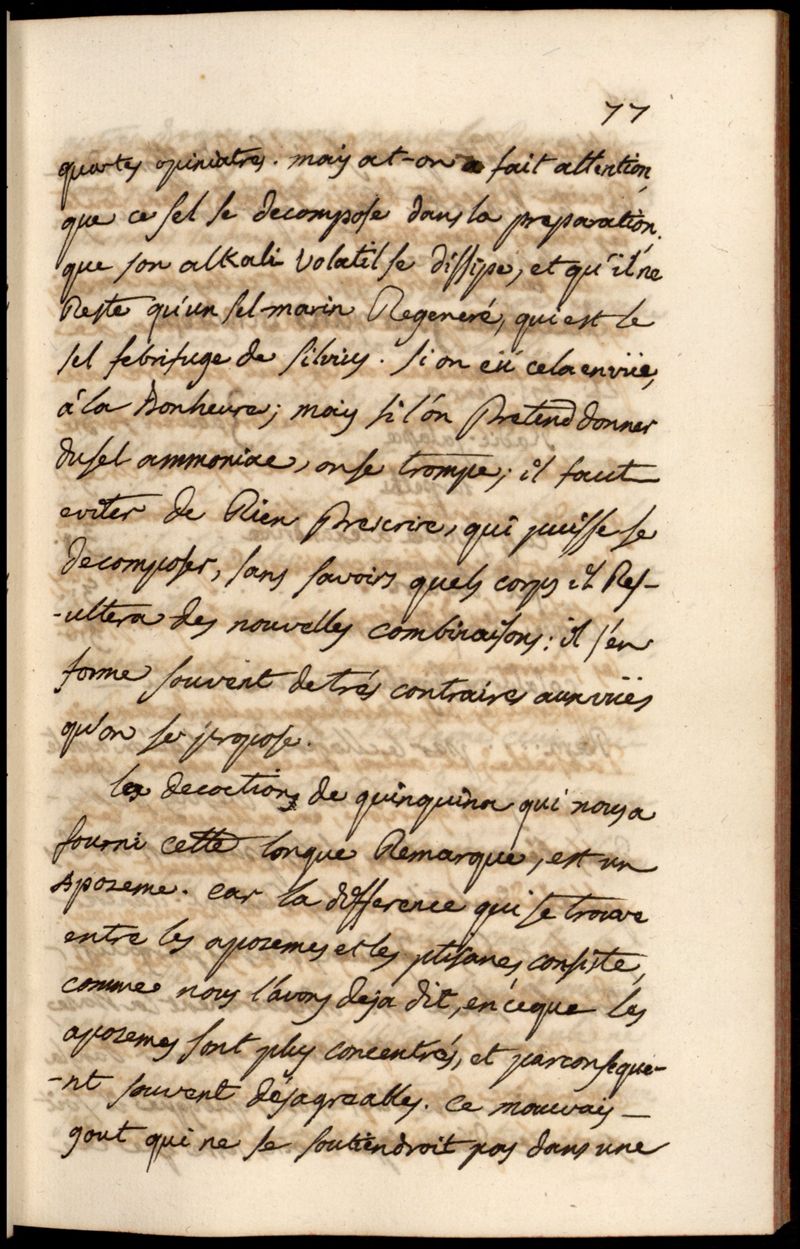 77
quartes opiniatres. mais at-on fait attention,
que ce sel se decompose dans la preparation,
que son alkali volatil se dissipe, et qu'il ne
Reste qu'un sel-marin Regeneré, qui est le
sel febrifuge de silvius. si on eü cela en vüe,
á la Bonheure; mais si l'ón Pretend donner
du sel ammoniac, on se trompe; il faut
eviter de Rien Prescrire, qui puisse se
decomposer, sans savoir quels corps il Res-
-ultera des nouvelles combinaisons: il s'en
forme souvent de trés contraires aux vües
qu'on se propose.
les decoctions de quinquina qui nous a
fourni cette longue Remarque, est un
Apozeme. car la difference qui se trouve
entre les apozemes et les ptisanes consiste,
comme nous l'avons deja dit, en ceque les
apozemes sont plus concentrés, et parconseque-
-nt souvent désagreables. ce mauvais
gout qui ne se soutiendroit pas dans une